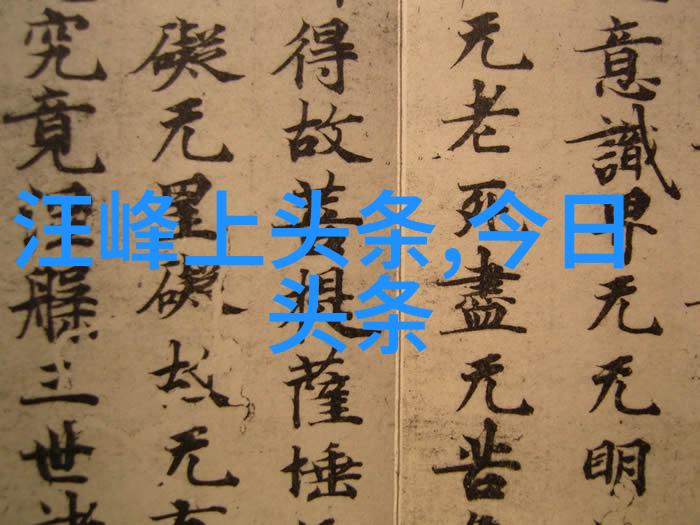 意識界无无明
无老死盡无苦
得故菩提薩埵
礙无罣礙故无有
究竟涅槃三世諸
汪峰上头条,今日
头条